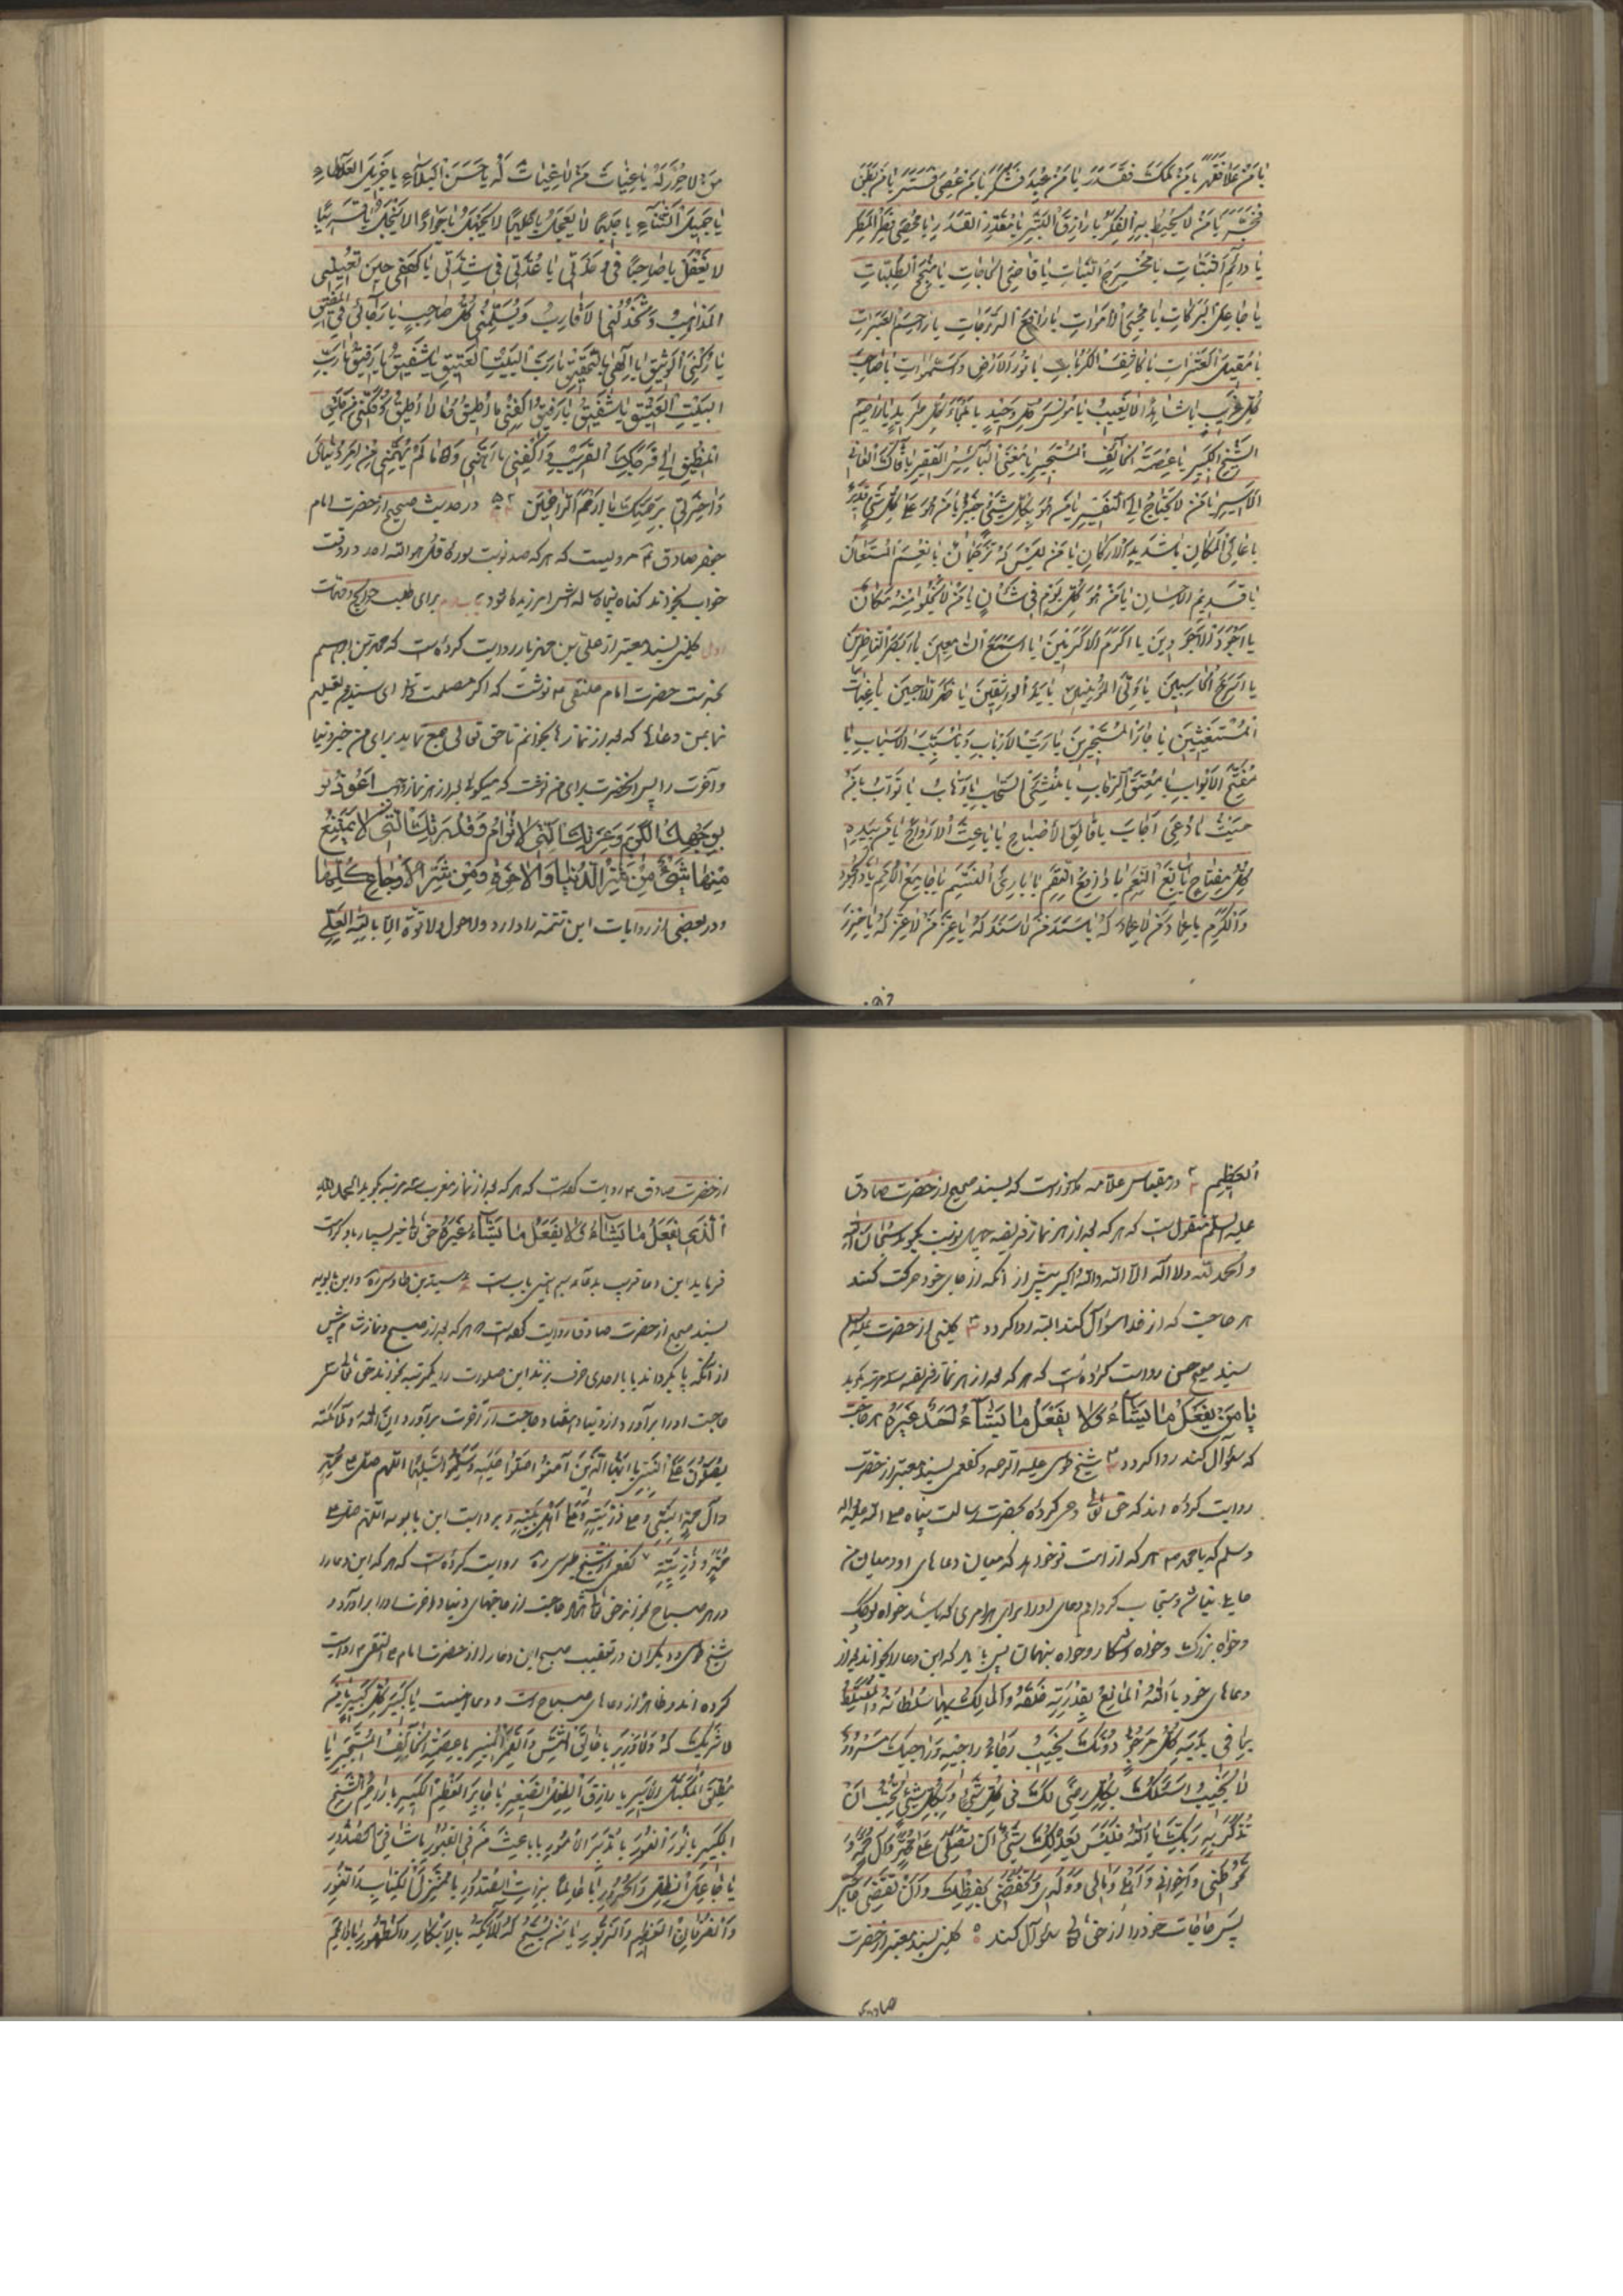 يا مَنْ عَلا فَقَهَرَ يا مَنْ مَلَكَ فَقَدَرَ يا مَنْ عُبِدَ فَشَكَرَ يا مَنْ عُصِيَ فَسَتَرَ يا مَنْ بَطَنَ
فَخَبَرَ يا مَنْ لا يُحيطُ بِهِ الفِكَرُ يا رازِقَ البَشَرِ يا مُقَدِّرَ القَدَرِ يا مُحْصِيَ قَطْرِ المَطَرِ
يا دائِمَ الثَّباتِ يا مُخْرِجَ النَّباتِ يا قاضِيَ الحاجاتِ يا مُنْجِحَ الطَّلِباتِ
يا جاعِلَ البَرَكاتِ يا مُحْيِيَ الاَمْواتِ يا رافِعَ الدَّرَجاتِ يا راحِمَ العَبَراتِ
يا مُقيلَ العَثَراتِ يا كاشِفَ الكُرُباتِ يا نُورَ الاَرْضِ وَ السَّمواتِ يا صاحِبَ
كُلِّ غَريبٍ يا شاهِداً لا يَغيبُ يا مُونِسَ كُلِّ وَحيدٍ يا مَلْجَأَ كُلِّ طَريدٍ يا راحِمَ
الشَّيْخِ الكَبيرِ يا عِصْمَةَ الخآئِفِ المُسْتَجيرِ يا مُغْنِيَ البآئِسِ الفَقيرِ يا فاكَّ العانِي
الاَسيرِ يا مَنْ لا يَحْتاجُ اِلَى التَّفْسيرِ يا مَنْ هُوَ بِكُلِّ شَيْءٍ خَبيرٌ يا مَنْ هُوَ عَلى كُلِّ شَيْءٍ قَديرٌ
يا عالِيَ المَكانِ يا شَديدَ الاَرْكانِ يا مَنْ لَيْسَ لَهُ تَرْجُمانٌ يا نِعْمَ المُسْتَعانُ
يا قَديمَ الاِحْسانِ يا مَنْ هُوَ كُلَّ يَوْمٍ في شَاْنٍ يا مَنْ لا يَخْلُو مِنْهُ مَكانٌ
يا اَجْوَدَ الاَجْوَدينَ يا اَكْرَمَ الاَكْرَمينَ يا اَسْمَعَ السّامِعينَ يا اَبْصَرَ النّاظِرينَ
يا اَسْرَعَ الحاسِبينَ يا وَلِيَّ المُؤْمِنينَ يا يَدَ الواثِقينَ يا ظَهْرَ اللّاجينَ يا غِياثَ
المُسْتَغيثينَ يا جارَ المُسْتَجيرينَ يا رَبَّ الاَرْبابِ وَ يا مُسَبِّبَ الاَسْبابِ يا
مُفَتِّحَ الاَبْوابِ يا مُعْتِقَ الرِّقابِ يا مُنْشِئَ السَّحابِ يا وَهّابُ يا تَوّابُ يا مَنْ
حَيْثُ ما دُعِيَ اَجابَ يا فالِقَ الاَصْباحِ يا باعِثَ الاَرْواحِ يا مَنْ بِيَدِهِ
كُلُّ مِفْتاحٍ يا سابِغَ النِّعَمِ يا دافِعَ النِّقَمِ يا بارِئَ النَّسَمِ يا جامِعَ الاُمَمِ يا ذَا الجُودِ
وَ الكَرَمِ يا عِمادَ مَنْ لا عِمادَ لَهُ يا سَنَدَ مَنْ لا سَنَدَ لَهُ يا عِزَّ مَنْ لا عِزَّ لَهُ يا حِرْزَ
مَنْ لا حِرْزَ لَهُ يا غِياثَ مَنْ لا غِياثَ لَهُ يا حَسَنَ البَلاءِ يا جَزيلَ العَطاءِ
يا جَميلَ الثَّناءِ يا حَليماً لا يَعْجَلُ يا عَليماً لا يَجْهَلُ يا جَواداً لا يَبْخَلُ يا قَريباً
لا يَغْفُلُ يا صاحِبي في وَحْدَتي يا عُدَّتي في شِدَّتي يا كَهْفي حينَ تُعْييني
المَذاهِبُ وَ تَخْذُلُنِي الاَقارِبُ وَ يُسْلِمُني كُلُّ صاحِبٍ يا رَجائي فِي المَضيقِ
يا رُكْنِيَ الوَثيقَ يا اِلهي بِالتَّحْقيقِ يا رَبَّ البَيْتِ العَتيقِ يا شَفيقُ يا رَفيقُ يا رَبَّ
البَيْتِ العَتيقِ يا شَفيقُ يا رَفيقُ اكْفِني ما اُطيقُ وَ ما لا اُطيقُ وَ فُكَّني مِنْ حَلَقِ
المَضيقِ اِلى فَرَجِكَ القَريبِ وَ اكْفِني ما اَهَمَّني وَ ما لَمْ يُهِمَّني مِنْ اَمْرِ دُنْيايَ
وَ اخِرَتي بِرَحْمَتِكَ يا اَرْحَمَ الرّاحِمينَ در حديث صحيح از حضرت امام
جعفر صادق ع مرويست كه هر كه صد نوبت سوره قل هو الله احد در وقت
خواب بخواند گناه پنجاه ساله اش امرزيده شود برای طلب حوائج و مهمات
اول كليني بسند معتبر از علي بن مهزيار روايت كرده است كه محمد بن ابراهيم
بخدمت حضرت امام علي نقي ع نوشت كه اگر مصلحت دانی ای سيد من تعليم
نما بمن دعائی كه بعد از نمازها بخوانم تا حق تعالی جمع نمايد برای من خير دنيا
و آخرت را پس آنحضرت برای من نوشت كه ميگوئی بعد از هر نماز واجب اَعُوذُ
بِوَجْهِكَ الكَريمِ وَ عِزَّتِكَ الَّتي لا تُرامُ وَ قُدْرَتِكَ الَّتي لا يَمْتَنِعُ
مِنْها شَيْءٌ مِنْ شَرِّ الدُّنْيا وَ الاخِرَةِ وَ مِنْ شَرِّ الاَوْجاعِ كُلِّها
و در بعضی از روايات اين تتمه را دارد و لا حول و لا قوة الا بالله العلي
العَظيم در مقباس علامه مذكور است كه بسند صحيح از حضرت صادق
عليه السلم منقول است كه هر كه بعد از هر نماز فريضه نوبت بگويد سبحان الله
و الحمد لله و لا اله الا الله و الله اكبر پيش از آنكه از جای خود حركت كند
هر حاجت كه از خدا سؤال كند البته روا گردد كليني از حضرت
بسند حسن روايت كرده است كه هر كه بعد از هر نماز فريضه سه مرتبه بگويد
يا مَنْ يَفْعَلُ ما يَشاءُ وَ لا يَفْعَلُ ما يَشاءُ اَحَدٌ غَيْرُهُ هر حاجت
كه سؤال كند روا گردد شيخ طوسي عليه الرحمه و كفعمي بسند معتبر از حضرت
روايت كرده اند كه حق تعالی وحی كرد به حضرت رسالت پناه صلی الله عليه و اله
و سلم كه يا محمد هر كه از امت تو خواهد كه ميان دعاهای او و ميان من
حايلی نباشد و مستجاب گردانم دعای او را برای هر امری كه باشد خواه كوچك
و خواه بزرگ و خواه آشكار و خواه پنهان پس بايد كه اين دعا را بخواند بعد از
دعاهای خود يا اَللهُ المانِعُ بِقُدْرَتِهِ خَلْقَهُ وَ المالِكُ بِها سُلْطانَهُ وَ المُتَسَلِّطُ
بِما في يَدَيْهِ كُلُّ مَرْجُوٍّ دُونَكَ يُخَيِّبُ رَجاءَ راجيهِ وَ راجيكَ مَسْرُورٌ
لا يَخيبُ اَسْئَلُكَ بِكُلِّ رِضًى لَكَ في كُلِّ شَيْءٍ وَ بِكُلِّ شَيْءٍ تُحِبُّ اَنْ
تُذْكَرَ بِهِ وَ بِكَ يا اَللهُ فَلَيْسَ يَعْدِلُكَ شَيْءٌ اَنْ تُصَلِّيَ عَلى مُحَمَّدٍ وَ آلِ مُحَمَّدٍ وَ
تَحُوطَني وَ اِخْواني وَ وَلَدي وَ تَحْفَظَني بِحِفْظِكَ وَ اَنْ تَقْضِيَ حاجَتي
پس حاجات خود را از حق تعالی سؤال كند كليني بسند معتبر از حضرت
از حضرت صادق ع روايت كرده است كه هر كه بعد از نماز مغرب سه مرتبه بگويد الحمد لله
الَّذي يَفْعَلُ ما يَشاءُ وَ لا يَفْعَلُ ما يَشاءُ غَيْرُهُ حق تعالی خير بسيار باو كرامت
فرمايد سيد بن طاوس ره و ابن بابويه
بسند صحيح از حضرت صادق روايت كرده است هر كه بعد از نماز صبح و نماز شام پيش
از آنكه پا بگرداند يا با احدی حرف بزند اين صلوات را يكمرتبه بخواند حق تعالی صد
حاجت او را برآورد از دنيا و هفتاد حاجت از آخرت برآورد اِنَّ اللهَ وَ مَلآئِكَتَهُ
يُصَلُّونَ عَلَى النَّبِيِّ يا اَيُّهَا الَّذينَ آمَنُوا صَلُّوا عَلَيْهِ وَ سَلِّمُوا تَسْليماً اللهم صل علی محمد
النَّبِيِّ وَ عَلى ذُرِّيَّتِهِ وَ عَلى اَهْلِ بَيْتِهِ و بروايت ابن بابويه اللهم صل علی
مُحَمَّدٍ وَ ذُرِّيَّتِهِ كفعمي از شيخ طبرسي ره روايت كرده است كه هر كه اين دعا را
در هر صباح بخواند حق تعالی حاجت از حاجتهای دنيا و آخرت او را برآورد
شيخ طوسي و ديگران در تعقيب صبح اين دعا را از حضرت امام علی النقی ع روايت
كرده اند و ظاهرا از دعاهای صباح است و دعا اينست يا كَبيرَ كُلِّ كَبيرٍ يا مَنْ
لا شَريكَ لَهُ وَ لا وَزيرَ يا خالِقَ الشَّمْسِ وَ القَمَرِ المُنيرِ يا عِصْمَةَ الخآئِفِ المُسْتَجيرِ يا
مُطْلِقَ المُكَبَّلِ الاَسيرِ يا رازِقَ الطِّفْلِ الصَّغيرِ يا جابِرَ العَظْمِ الكَسيرِ يا راحِمَ الشَّيْخِ
الكَبيرِ يا نُورَ النُّورِ يا مُدَبِّرَ الاُمُورِ يا باعِثَ مَنْ فِي القُبُورِ يا شافِيَ الصُّدُورِ
يا جاعِلَ الظِّلِّ وَ الحَرُورِ يا عالِماً بِذاتِ الصُّدُورِ يا مُنْزِلَ الكِتابِ وَ النُّورِ
وَ الفُرْقانِ العَظيمِ وَ الزَّبُورِ يا مَنْ تُسَبِّحُ لَهُ المَلآئِكَةُ بِالاِبْكارِ وَ الظُّهُورِ يا دائِمَ